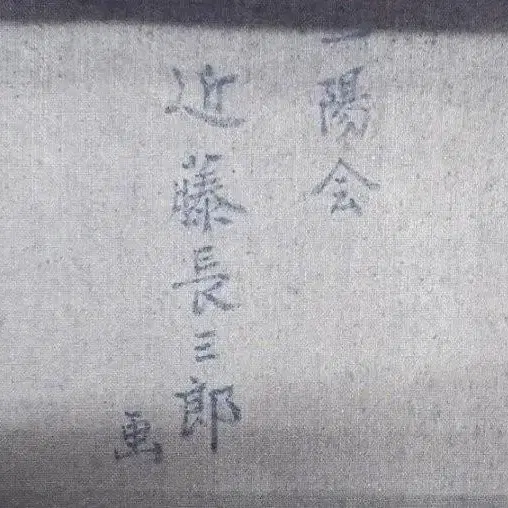 陽会
近藤長三郎
画